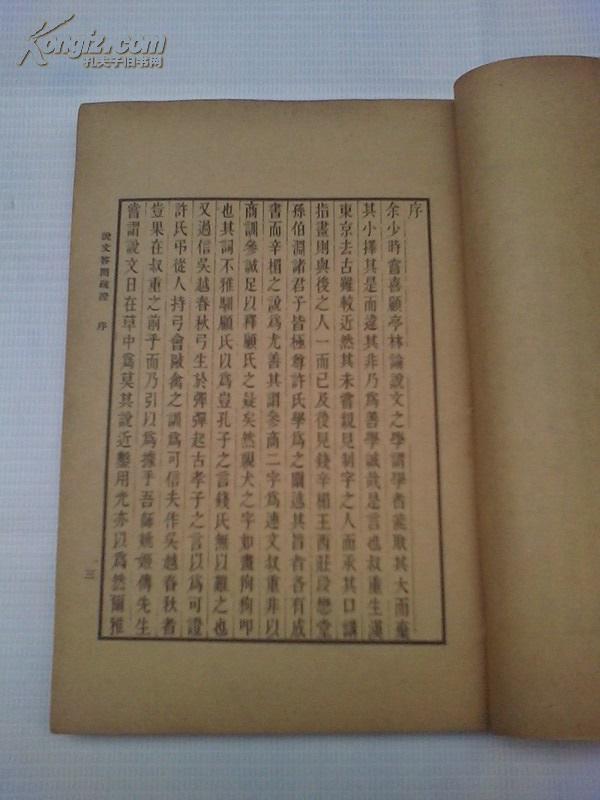 Kongfz.com
孔夫子旧书网
序
余少時嘗喜顧亭林論說文之學謂學者能取其大而棄
其小擇其是而違其非乃為善學誠哉是言也叔重生漢
東京去古雖較近然其未嘗親見制字之人而承其口講
指畫則與後之人一而已及後見錢辛楣王西莊段懋堂
孫伯淵諸君子皆極尊許氏學為之闡述其旨者各有成
書而辛楣之說為尤善其謂參商二字為連文叔重非以
商訓參誠足以釋顧氏之疑矣然視犬之字如畫狗狗叩
也其詞不雅馴顧氏以為豈孔子之言錢氏無以難之也
又過信吳越春秋弓生於彈彈起古孝子之言以為可證
許氏弔從人持弓會敺禽之訓為可信夫作吳越春秋者
豈果在叔重之前乎而乃引以為據乎吾師姚姬傳先生
嘗謂說文日在茻中為莫其說近鑿用光亦以為然爾雅
說文答問疏證 序
三